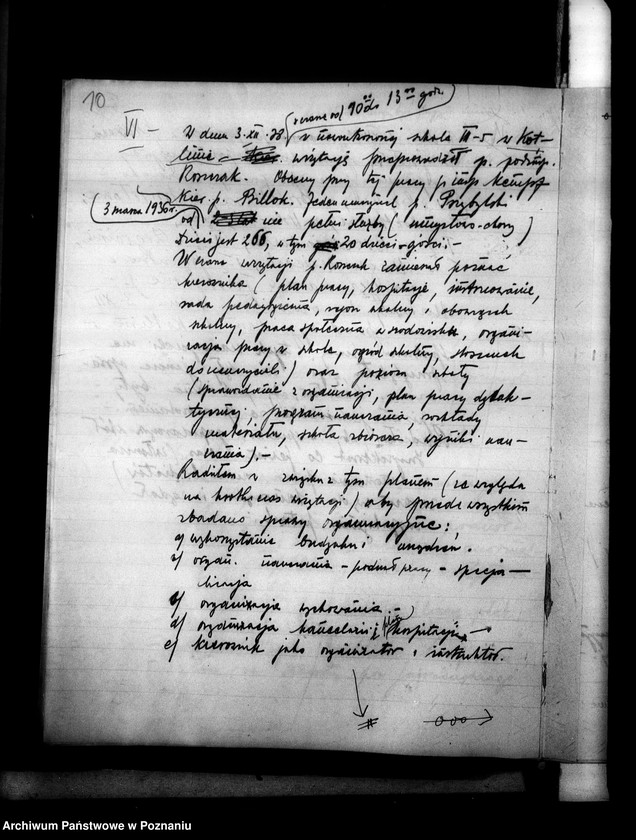 10
w czasie od 10⁰⁰ do 13⁰⁰ godz.
VI –
W dniu 3.XII.38 w szkole III-s w Kot-
linie wizytację przeprowadził p. podinsp.
Kornak. Obecny przy tej pracy p. insp. Kempf
Kier. p. Billok. Jeden nauczyciel p. Przybylski
(3 marca 1936 r.
od nie pełni służby (umysłowo-chory)
Dzieci jest 266, w tym 20 dzieci-gości. –
W czasie wizytacji p. Kornak zamierzał poznać
kierownika (plan pracy, hospitacje, instruowanie,
rada pedagogiczna, rejon szkolny i obowiązek
szkolny, praca społeczna w środowisku, organi-
zacja pracy w szkole, ogród szkolny, stosunek
do nauczycieli) oraz poziom szkoły
(sprawozdanie z organizacji, plan pracy dydak-
tycznej, program nauczania, rozkłady
materiału, szkoła zbiorcza, wyniki nau-
czania). –
Radziłem w związku z tym planem (ze względu
na krótki czas wizytacji) aby przede wszystkim
zbadano sprawy organizacyjne:
a) wykorzystanie budynku i urządzeń.
b) organ. nauczania – podział pracy – specja-
lizacja
c) organizacja wychowania. –
d) organizacja kancelarii i hospitacji –
e) kierownik jako organizator i instruktor.
Archiwum Państwowe w Poznaniu